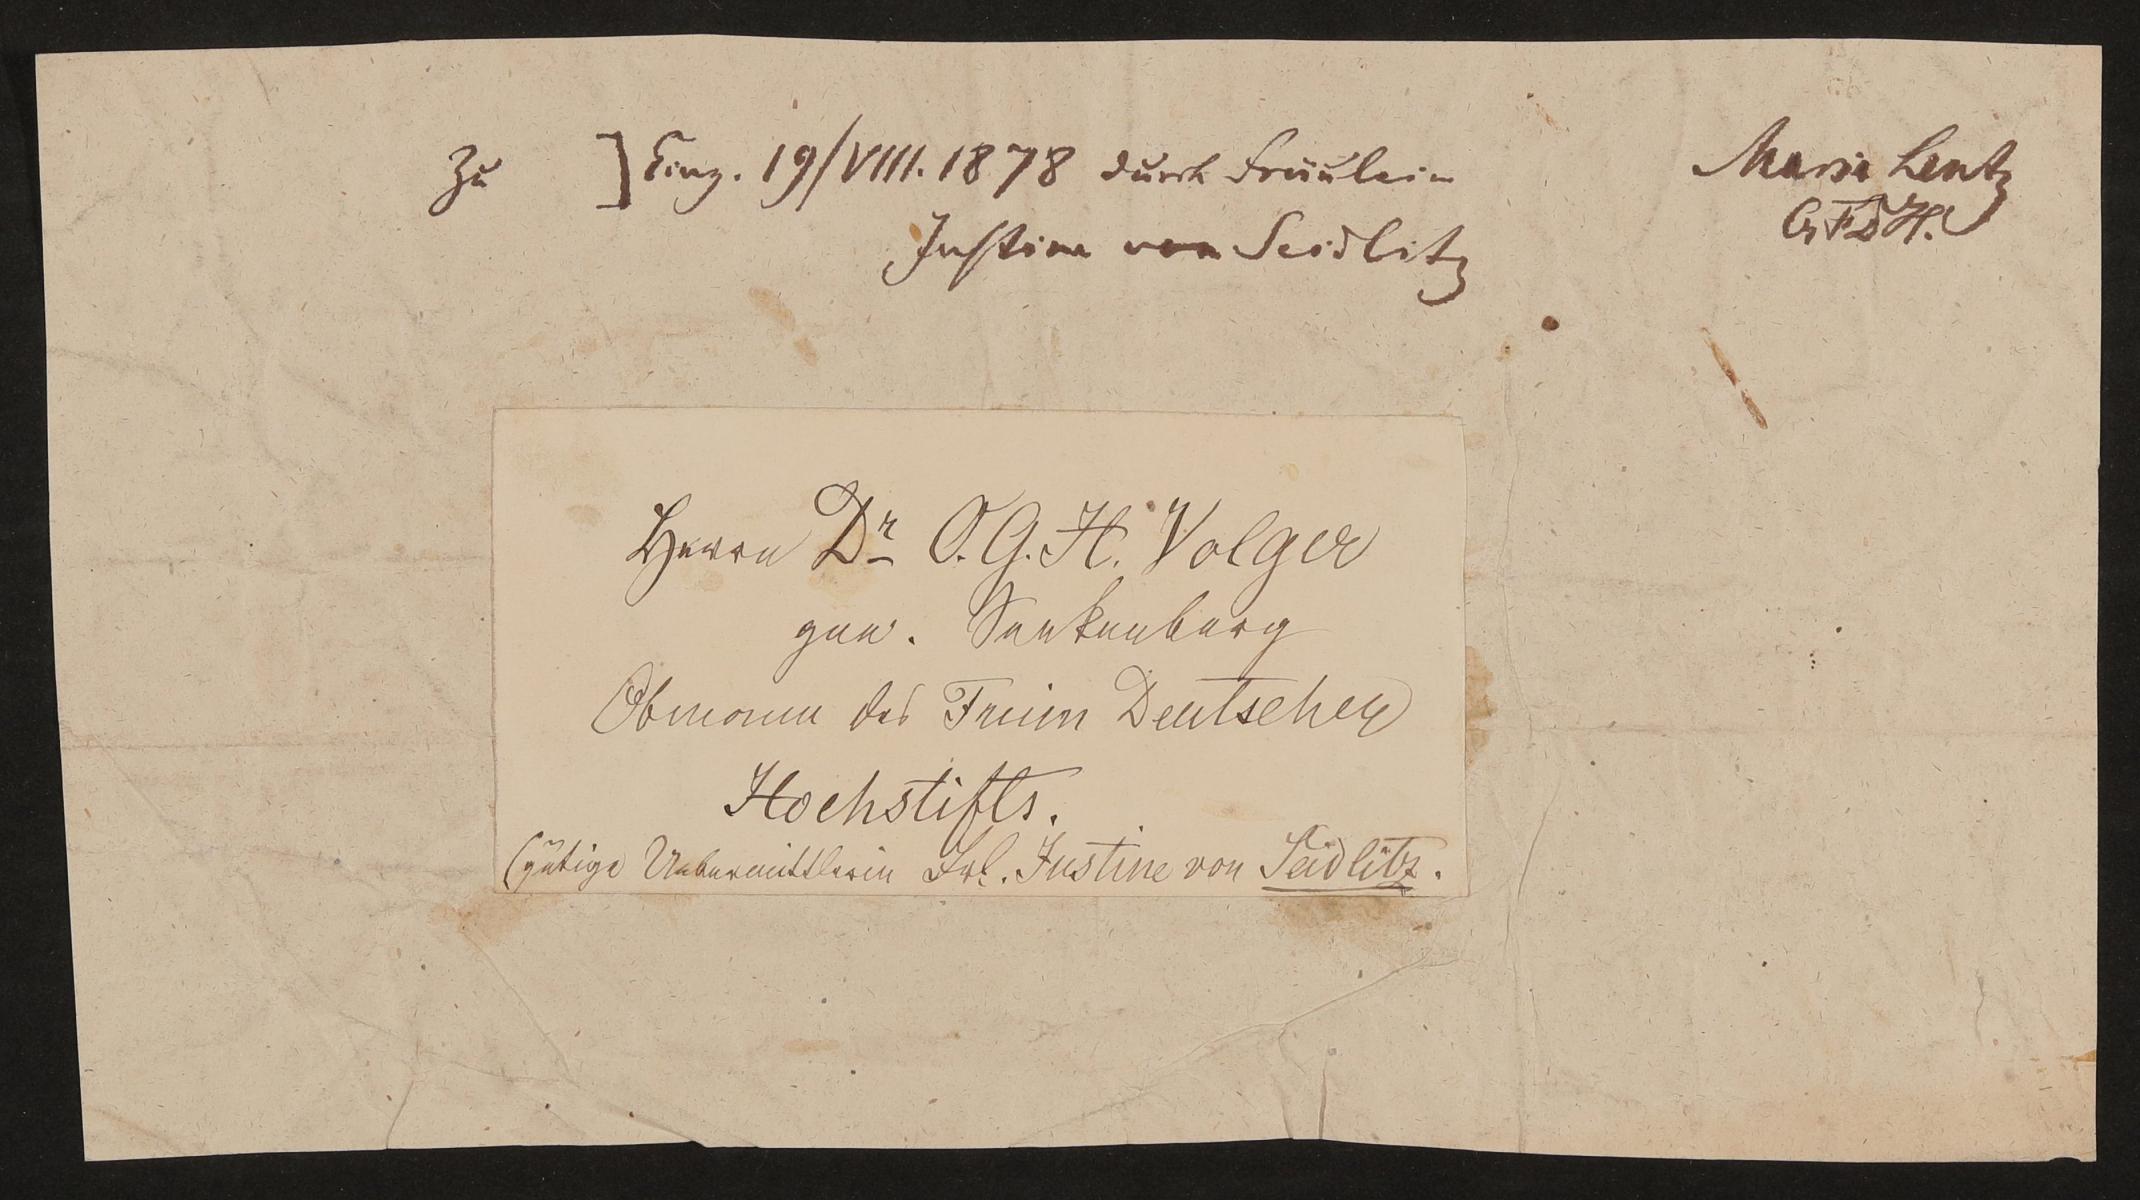 Zu ] Eing. 19/VIII. 1878 durch Fräulein
Justine von Seidlitz
Maria Lentz
G. F D H.
Herrn Dr O. G. H. Volger
gen. Senkenberg
Obmann des Freien Deutschen
Hochstifts.
(gütige Uebermittlerin Frl. Justine von Seidlitz.